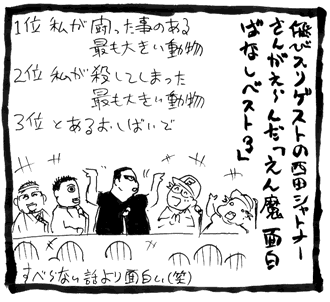 飛び入りゲストの西田シャトナー
さんがえ〜んだっえん魔 面白
ばなしベスト3」
1位 私が闘った事のある
最も大きい動物
2位 私が殺してしまった
最も大きい動物
3位 とあるおしばいで
すべらない話より面白い(笑)